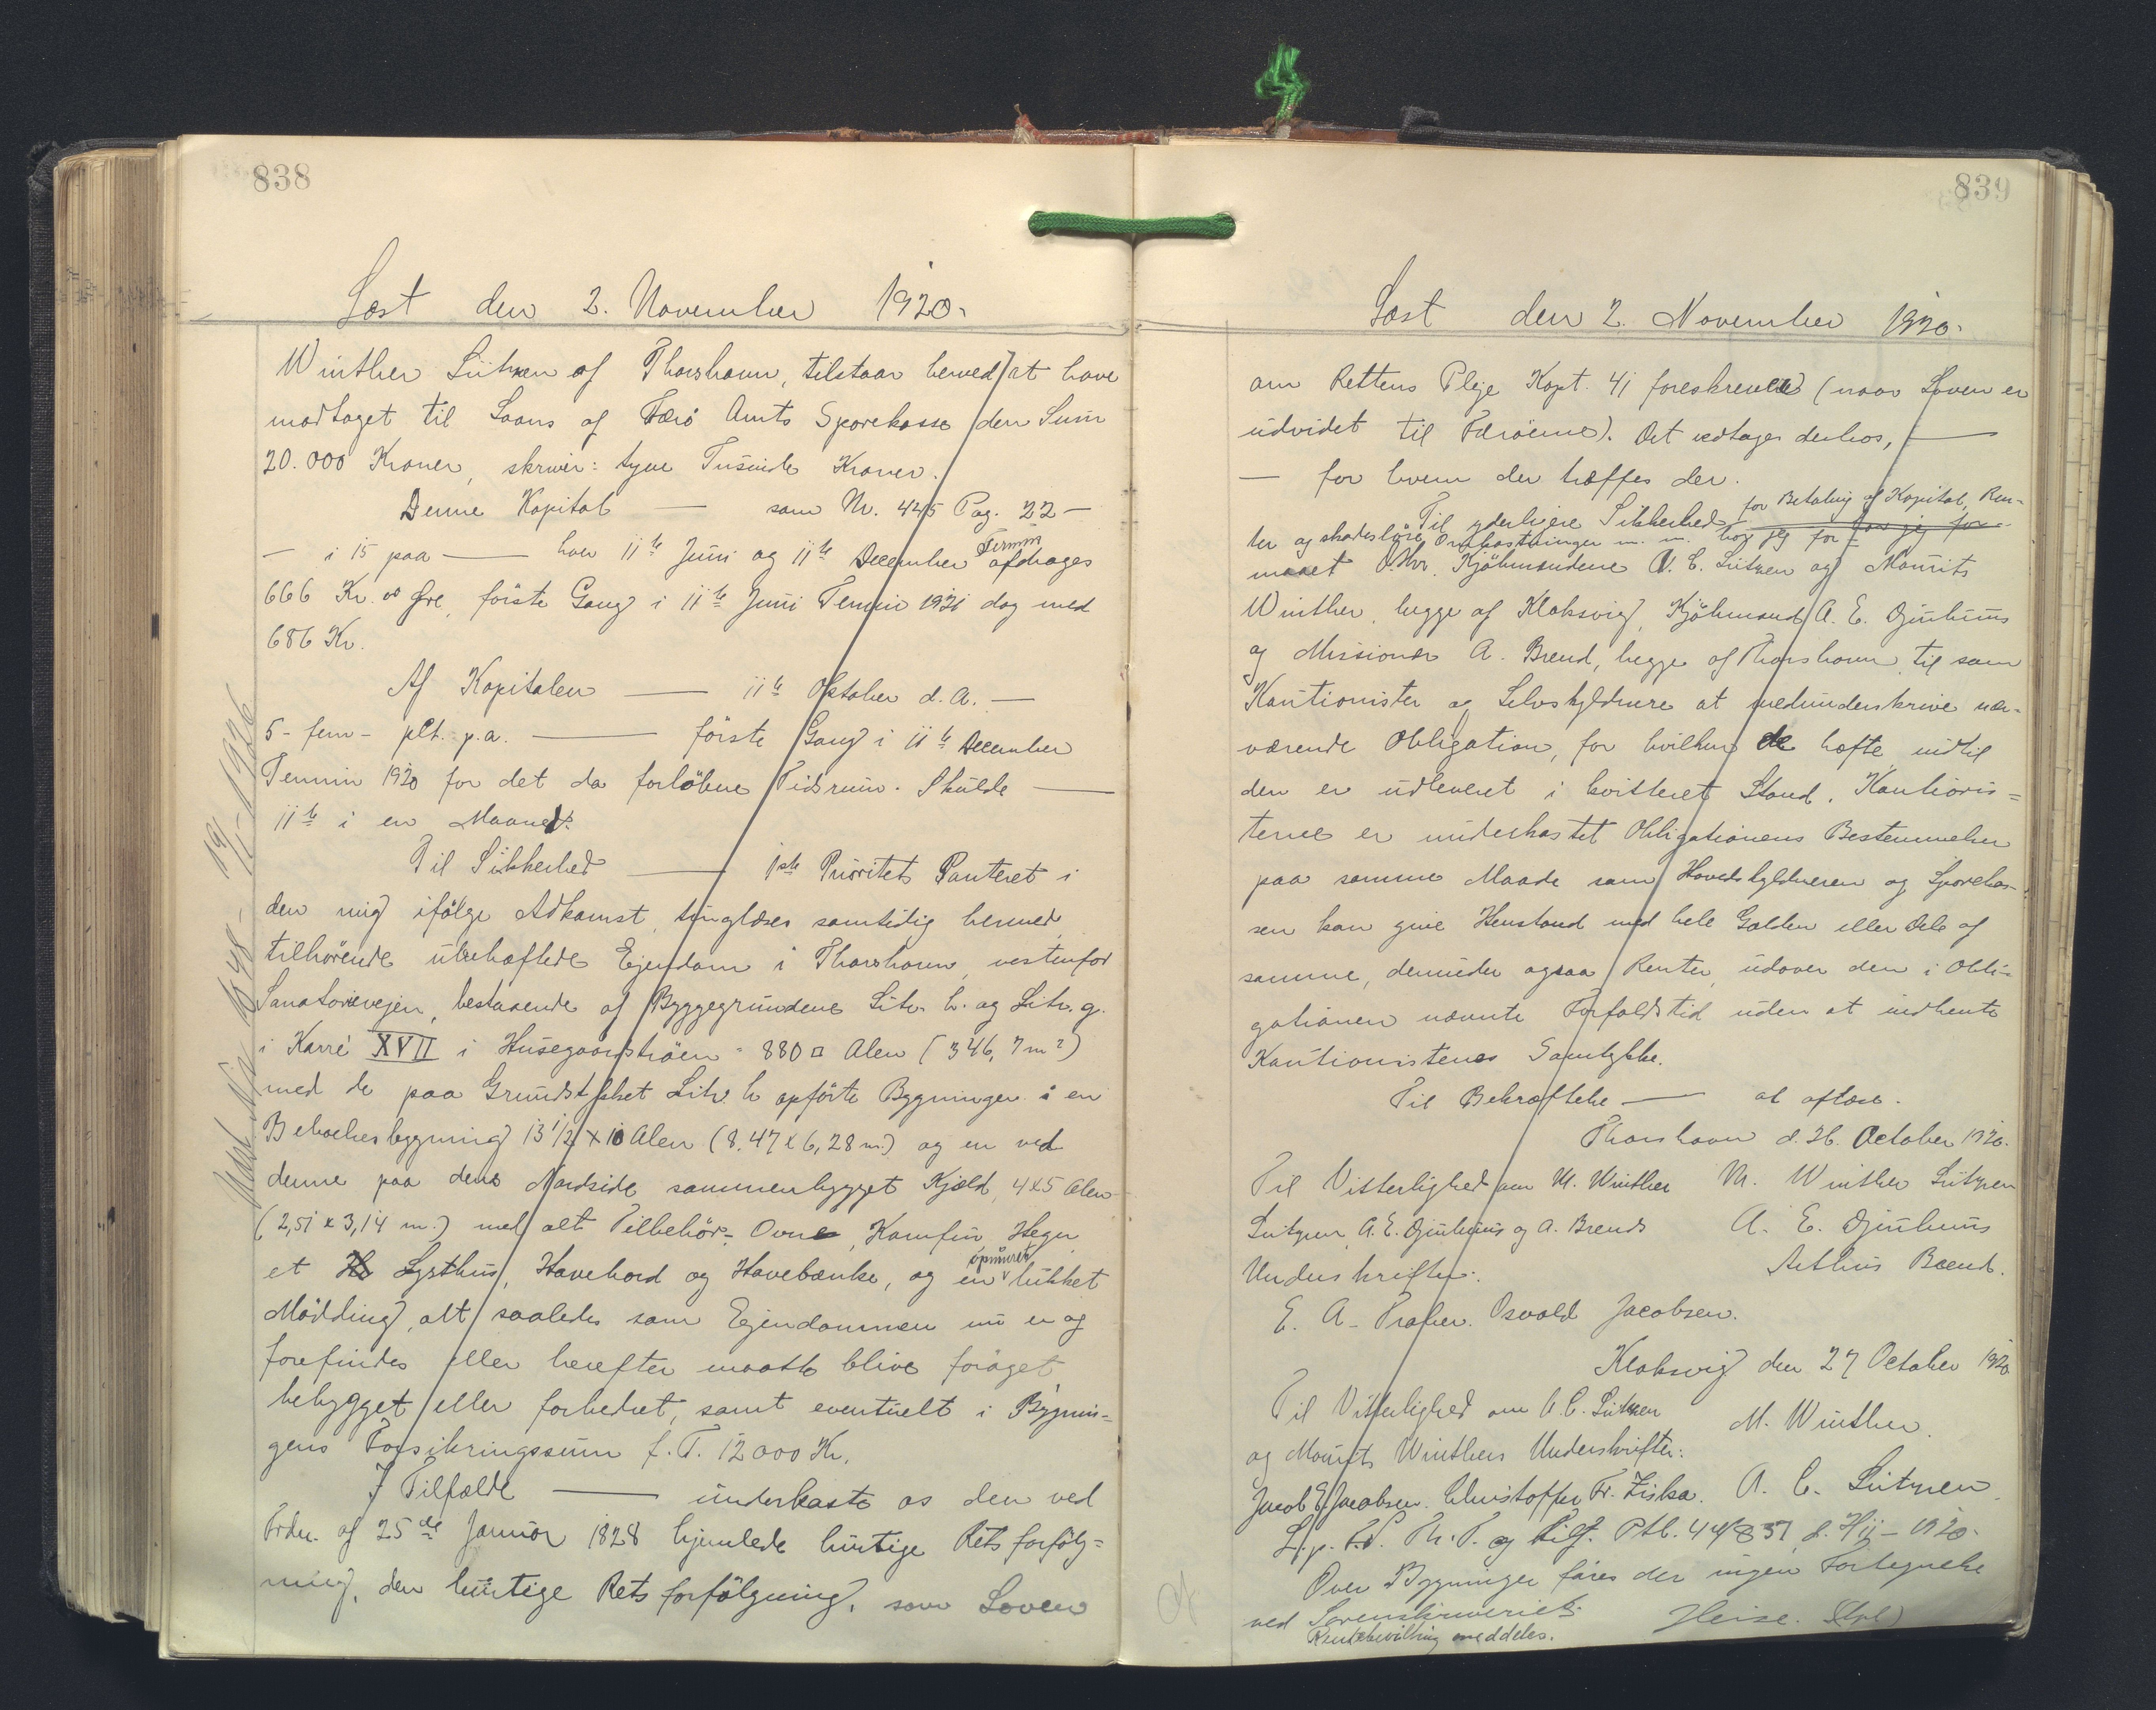 838
Læst den 2. November 1920.
Winther Lützen af Thorshavn, tilstaar herved at have
modtaget til Laans af Færö Amts Sparekasse den Sum
20.000 Kroner, skriver: tyve Tusinde Kroner.
Denne Kapital — som Nr. 445 Pag. 22 —
— i 15 paa — hver 11te Juni og 11te December Termin afdrages
666 Kr. 00 Øre, förste Gang i 11te Juni Termin 1921 dog med
686 Kr.
Af Kapitalen — 11te Oktober d. A. —
5 - fem - pCt. p.a. — förste Gang i 11te December
Termin 1920 for det da forløbne Tidsrum. Skulde —
11te i en Maaned.
Til Sikkerhed — 1ste Prioritets Panteret i
den mig ifölge Adkomst, tinglæses samtidig hermed,
tilhörende ubehæftede Ejendom i Thorshavn, vestenfor
Sanatorievejen, bestaaende af Byggegrundene Litr. h. og Litr. g.
i Karré XVII i Husegaardströen = 880 □ Alen (346,7 m²)
med de paa Grundstykket Litr. h opförte Bygninger: i en
Beboelsesbygning 13 1/2 x 10 Alen (8.47 x 6,28 m.) og en ved
denne paa dens Nordside sammenbygget Kjæld, 4x5 Alen
(2,51 x 3,14 m.) med alt Tilbehör: Ovne, Komfur, Hegn
et Lysthus, Havebord og Havebænke, og en opmuret lukket
Mödding, alt saaledes som Ejendommen nu er og
forefindes eller herefter maatte blive forøget,
bebygget eller forbedret, samt eventuelt i Bygnin=
gens Forsikringssum f. T. 12000 Kr.
I Tilfælde — underkaste os den ved
Frdn. af 25de Januar 1828 hjemlede hurtige Retsforfölg=
ning, den hurtige Retsforfölgning, som Loven
19/11-1926
839
Læst den 2. November 1920.
om Rettens Pleje Kapt. 41 foreskrevne (naar Loven er
udvidet til Færöerne). Det vedtages derhos, —
— for hvem der træffes der.
Til yderligere Sikkerhed for Betaling af Kapital, Ren-
ter og skadeslöse Omkostninger m. m. har jeg for-
maaet D.Hrr. Kjöbmændene A. C. Lützen og Mourits
Winther, begge af Klaksvig, Kjöbmand A. E. Djurhuus
og Missionær A. Brend, begge af Thorshavn til som
Kautionister og Selvskyldnere at medunderskrive nær-
værende Obligation, for hvilken de hæfte indtil
den er udleveret i kvitteret Stand. Kautionis=
terne er underkastet Obligationens Bestemmelser
paa samme Maade som Hovedskyldneren og Sparekas-
sen kan give Henstand med hele Gælden eller Dele af
samme, derunder ogsaa Renter, udover den i Obli-
gationen nævnte Forfaldstid uden at indhente
Kautionisternes Samtykke.
Til Bekræftelse — at aflæse.
Thorshavn d. 26. October 1920.
Til Vitterlighed om M. Winther M. Winther Lützen
Lützen, A. E. Djurhuus og A. Brends A. E. Djurhuus
Underskrifter: Arthur Brend.
E. A. Osvald Jacobsen.
Klaksvig den 27 October 1920
Til Vitterlighed om A. C. Lützen M. Winther.
og Mourits Winthers Underskrifter:
Jacob E. Jacobsen. Christoffer Fr. Ziska. A. C. Lützen.
Over Bygninger föres der ingen Fortegnelse
ved Sorenskriveriet. Heise.
Rentebevilling meddeles.